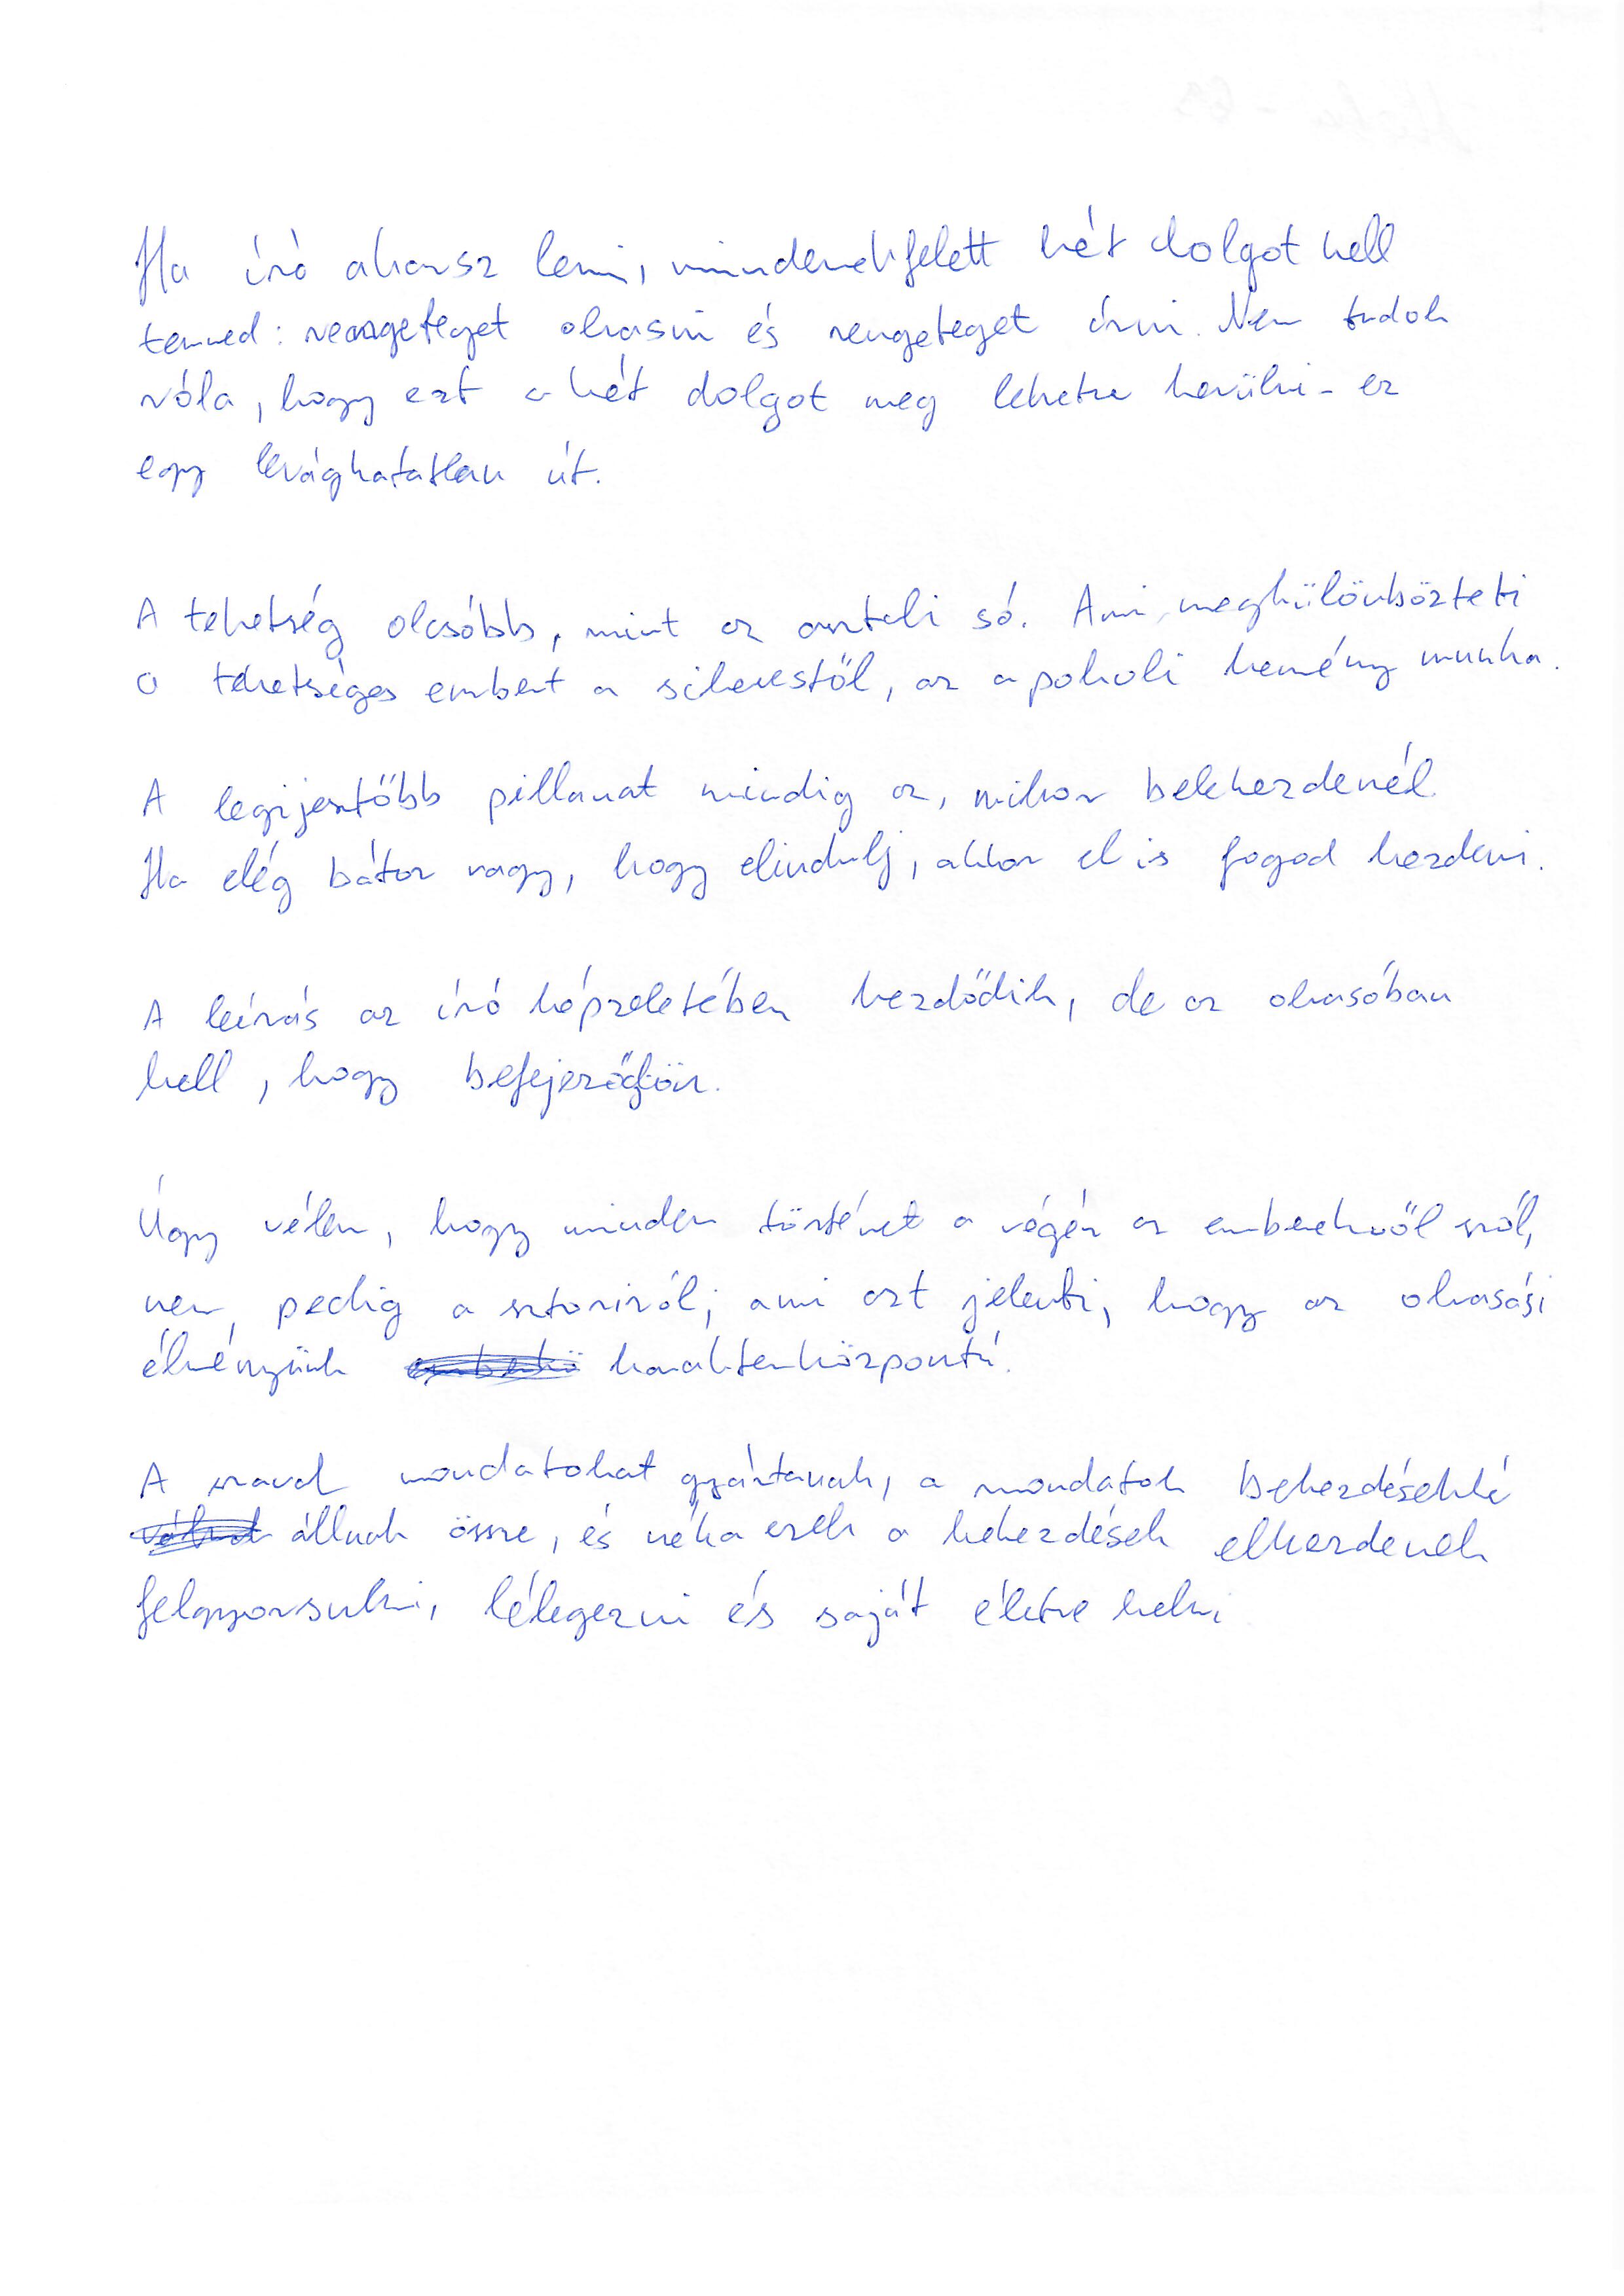 Ha író akarsz lenni, mindenekfelett két dolgot kell
tenned: rengeteget olvasni és rengeteget írni. Nem tudok
róla, hogy ezt a két dolgot meg lehetne kerülni - ez
egy levághatatlan út.
A tehetség olcsóbb, mint az asztali só. Ami megkülönbözteti
a tehetséges embert a sikerestől, az a pokoli kemény munka.
A legijesztőbb pillanat mindig az, mikor belekezdenél.
Ha elég bátor vagy, hogy elindulj, akkor el is fogod kezdeni.
A leírás az író képzeletében kezdődik, de az olvasóban
kell, hogy befejeződjön.
Úgy vélem, hogy minden történet a végén az emberekről szól,
nem pedig a sztoriról; ami azt jelenti, hogy az olvasási
élményünk karakterközpontú.
A szavak mondatokat gyártanak, a mondatok bekezdésekké
állnak össze, és néha ezek a bekezdések elkezdenek
felgyorsulni, lélegezni és saját életre kelni